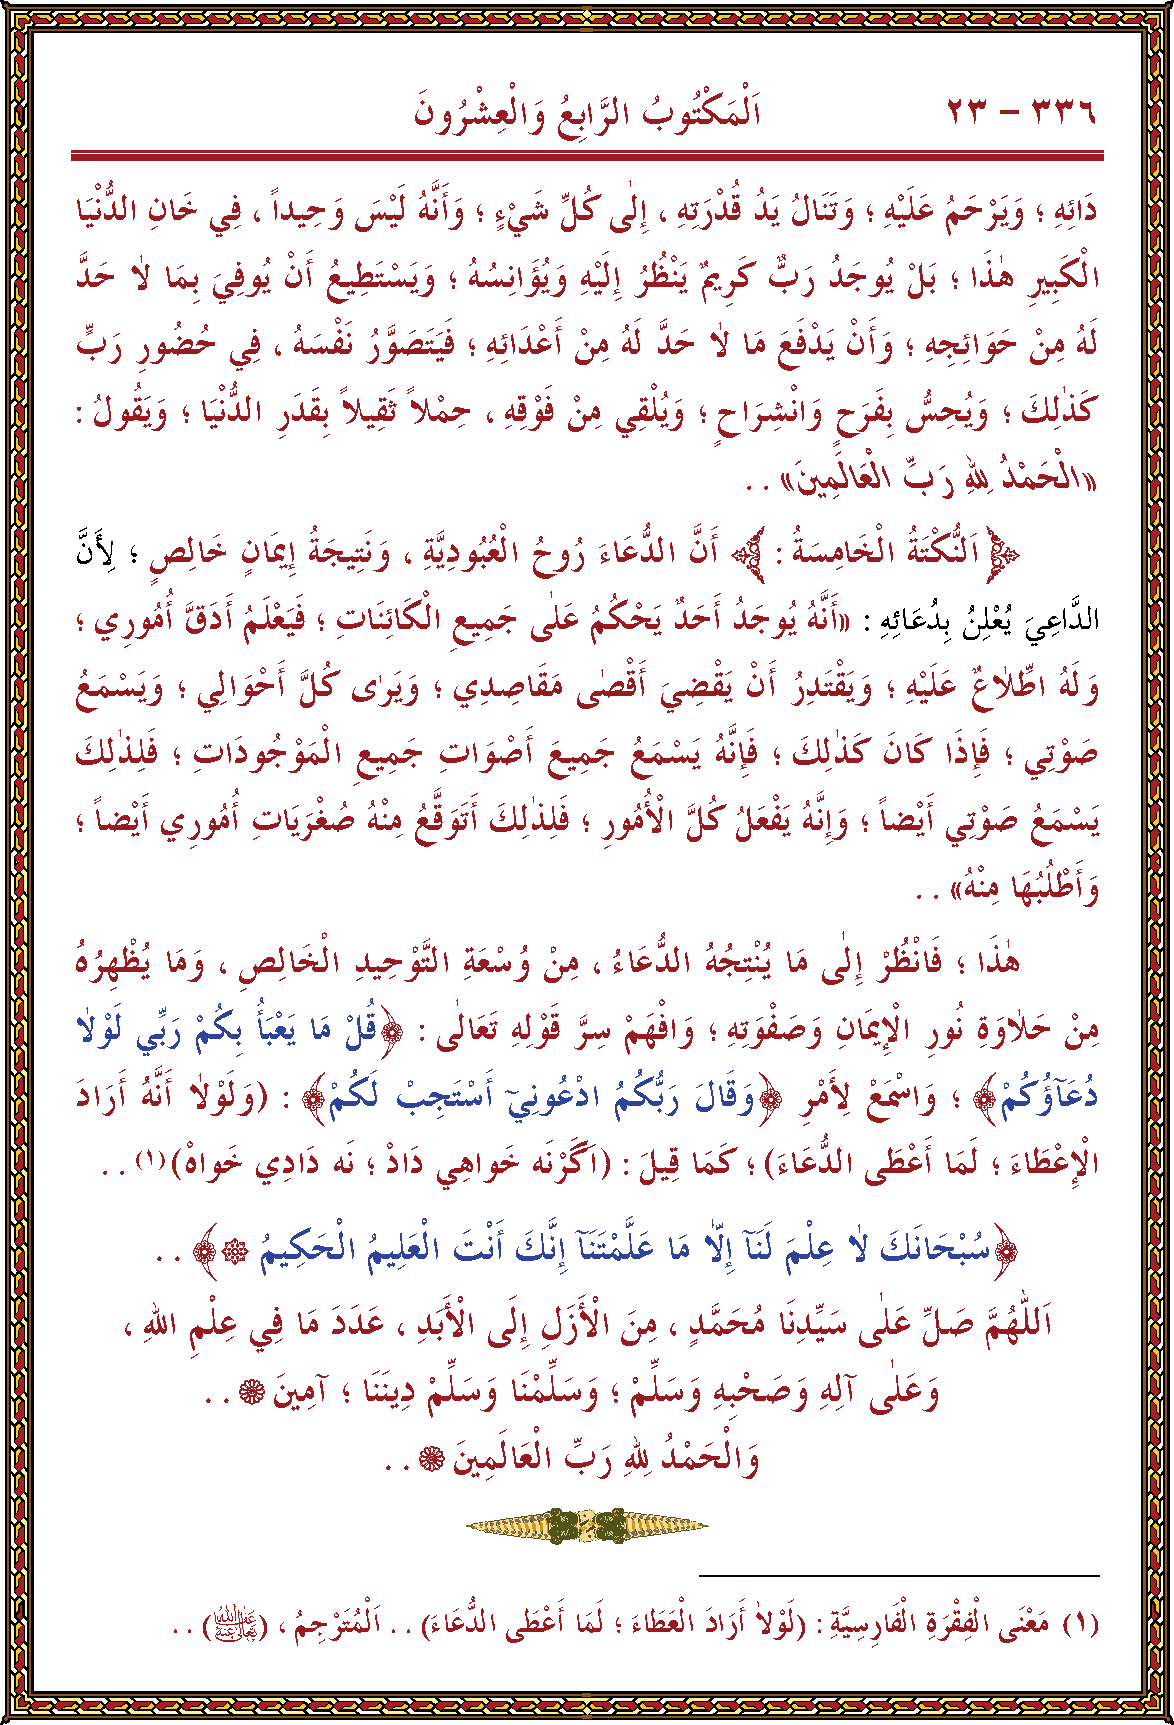 ٣٣٦ - ٢٣ اَلْمَكْتُوبُ الرَّابِعُ وَالْعِشْرُونَ
دَائِهِ ؛ وَيَرْحَمُ عَلَيْهِ ؛ وَتَنَالُ يَدُ قُدْرَتِهِ ، إِلٰى كُلِّ شَيْءٍ ؛ وَأَنَّهُ لَيْسَ وَحِيداً ، فِي خَانِ الدُّنْيَا
الْكَبِيرِ هٰذَا ؛ بَلْ يُوجَدُ رَبٌّ كَرِيمٌ يَنْظُرُ إِلَيْهِ وَيُؤَانِسُهُ ؛ وَيَسْتَطِيعُ أَنْ يُوفِيَ بِمَا لاٰ حَدَّ
لَهُ مِنْ حَوَائِجِهِ ؛ وَأَنْ يَدْفَعَ مَا لاٰ حَدَّ لَهُ مِنْ أَعْدَائِهِ ؛ فَيَتَصَوَّرُ نَفْسَهُ ، فِي حُضُورِ رَبٍّ
كَذٰلِكَ ؛ وَيُحِسُّ بِفَرَحٍ وَانْشِرَاحٍ ؛ وَيُلْقِي مِنْ فَوْقِهِ ، حِمْلاً ثَقِيلاً بِقَدَرِ الدُّنْيَا ؛ وَيَقُولُ :
«الْحَمْدُ لِلهِ رَبِّ الْعَالَمِينَ» . .
﴿ اَلنُّكْتَةُ الْخَامِسَةُ : ﴾ أَنَّ الدُّعَاءَ رُوحُ الْعُبُودِيَّةِ ، وَنَتِيجَةُ إِيمَانٍ خَالِصٍ ؛ لِأَنَّ
الدَّاعِيَ يُعْلِنُ بِدُعَائِهِ : «أَنَّهُ يُوجَدُ أَحَدٌ يَحْكُمُ عَلٰى جَمِيعِ الْكَائِنَاتِ ؛ فَيَعْلَمُ أَدَقَّ أُمُورِي ؛
وَلَهُ اطِّلاٰعٌ عَلَيْهِ ؛ وَيَقْتَدِرُ أَنْ يَقْضِيَ أَقْصٰى مَقَاصِدِي ؛ وَيَرٰى كُلَّ أَحْوَالِي ؛ وَيَسْمَعُ
صَوْتِي ؛ فَإِذَا كَانَ كَذٰلِكَ ؛ فَإِنَّهُ يَسْمَعُ جَمِيعَ أَصْوَاتِ جَمِيعِ الْمَوْجُودَاتِ ؛ فَلِذٰلِكَ
يَسْمَعُ صَوْتِي أَيْضاً ؛ وَإِنَّهُ يَفْعَلُ كُلَّ الْأُمُورِ ؛ فَلِذٰلِكَ أَتَوَقَّعُ مِنْهُ صُغْرَيَاتِ أُمُورِي أَيْضاً ؛
وَأَطْلُبُهَا مِنْهُ» . .
هٰذَا ؛ فَانْظُرْ إِلٰى مَا يُنْتِجُهُ الدُّعَاءُ ، مِنْ وُسْعَةِ التَّوْحِيدِ الْخَالِصِ ، وَمَا يُظْهِرُهُ
مِنْ حَلاٰوَةِ نُورِ الْإِيمَانِ وَصَفْوَتِهِ ؛ وَافْهَمْ سِرَّ قَوْلِهِ تَعَالٰى : ﴿قُلْ مَا يَعْبَأُ بِكُمْ رَبِّي لَوْلاٰ
دُعَآؤُكُمْ﴾ ؛ وَاسْمَعْ لِأَمْرِ ﴿وَقَالَ رَبُّكُمُ ادْعُونِيٓ أَسْتَجِبْ لَكُمْ﴾ : (وَلَوْلاٰ أَنَّهُ أَرَادَ
الْإِعْطَاءَ ؛ لَمَا أَعْطَى الدُّعَاءَ) ؛ كَمَا قِيلَ : (اَگَرْنَه خواهِي دَادْ ؛ نَه دَادِي خَواهْ)(١) . .
﴿سُبْحَانَكَ لاٰ عِلْمَ لَنَآ إِلاَّ مَا عَلَّمْتَنَآ إِنَّكَ أَنْتَ الْعَلِيمُ الْحَكِيمُ ۞﴾ . .
اَللّٰهُمَّ صَلِّ عَلٰى سَيِّدِنَا مُحَمَّدٍ ، مِنَ الْأَزَلِ إِلَى الْأَبَدِ ، عَدَدَ مَا فِي عِلْمِ اللهِ ،
وَعَلٰى آلِهِ وَصَحْبِهِ وَسَلِّمْ ؛ وَسَلِّمْنَا وَسَلِّمْ دِينَنَا ؛ آمِينَ ۞ . .
وَالْحَمْدُ لِلهِ رَبِّ الْعَالَمِينَ ۞ . .
(١) مَعْنَى الْفِقْرَةِ الْفَارِسِيَّةِ : (لَوْلاٰ أَرَادَ الْعَطَاءَ ؛ لَمَا أَعْطَى الدُّعَاءَ) . . اَلْمُتَرْجِمُ ، (عَفَا اللهُ تَعَالٰى عَنْهُ) . .